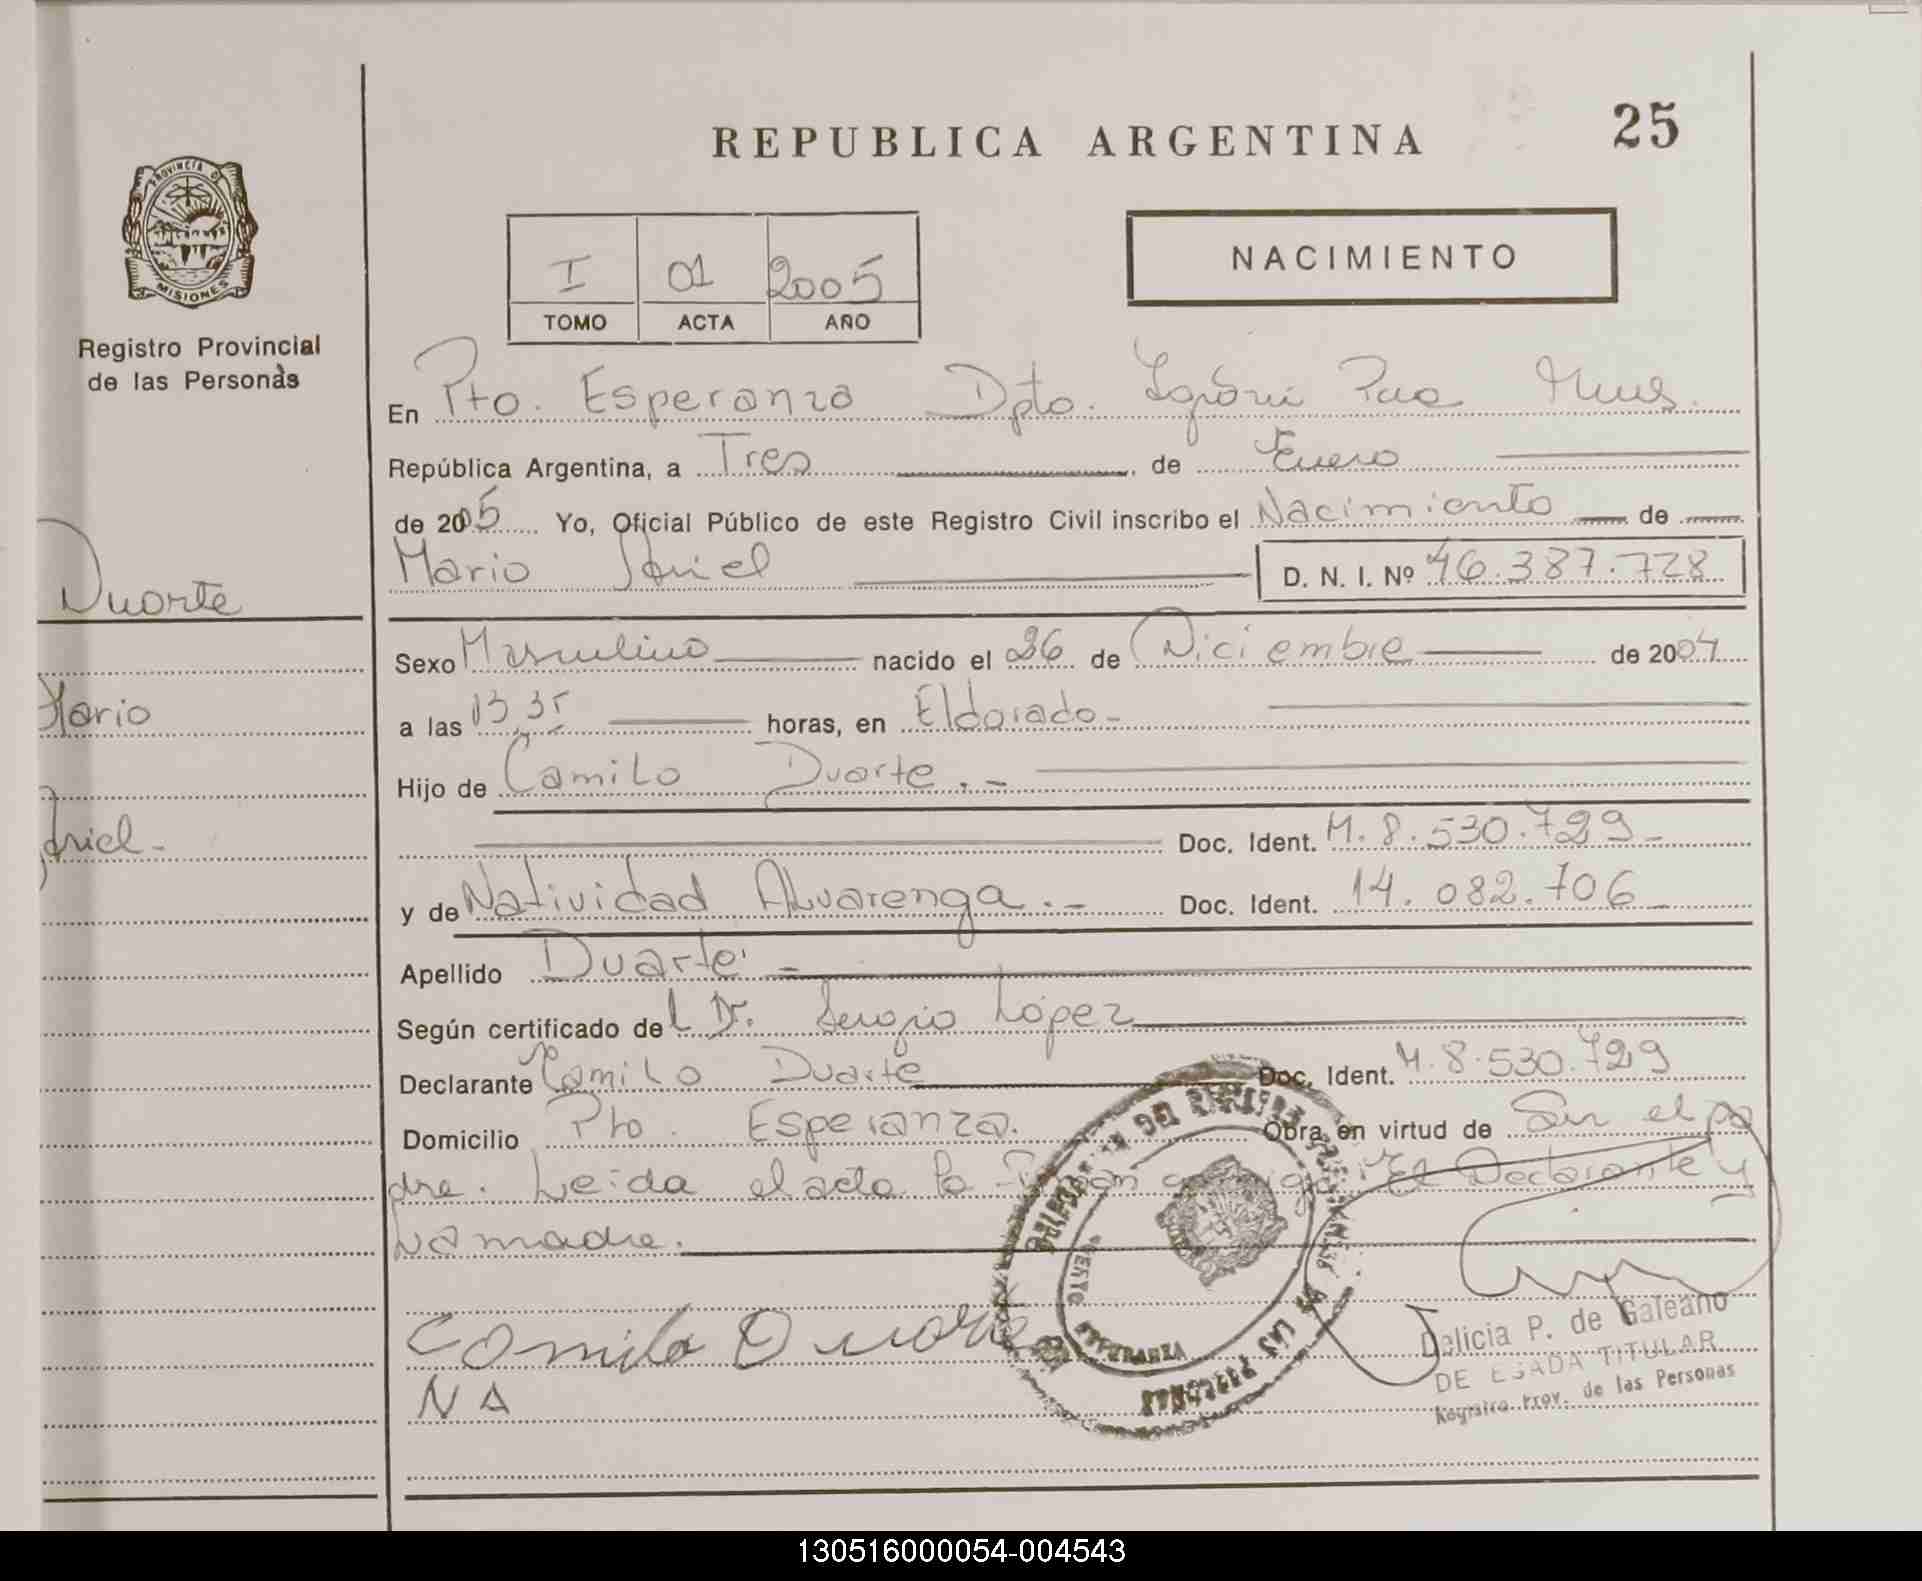 REPUBLICA ARGENTINA
25
PROVINCIA DE
MISIONES
Registro Provincial
de las Personas
I 01 2005
TOMO ACTA AÑO
NACIMIENTO
En Pto. Esperanza Dpto. Mnes.
República Argentina, a Tres de Enero
de 2005 Yo, Oficial Público de este Registro Civil inscribo el Nacimiento de
Mario Ariel D. N. I. Nº 46.387.728
Duarte
Mario
Ariel -
Sexo Masculino nacido el 26 de Diciembre de 2004
a las 13,35 horas, en Eldorado -
Hijo de Camilo Duarte . -
Doc. Ident. M. 8.530.729 -
y de Natividad Alvarenga . - Doc. Ident. 14.082.706 -
Apellido Duarte -
Según certificado del Dr. Sergio López
Declarante Camilo Duarte Doc. Ident. M. 8.530.729
Domicilio Pto. Esperanza. Obra en virtud de Ser el pa
dre. Leida el acta la El Declarante y
La madre.
Camilo Duarte
NA
DEL REGISTRO
DE LAS PERSONAS
PUERTO ESPERANZA
Delicia P. de Galeano
DELEGADA TITULAR
Registro Prov. de las Personas
130516000054-004543